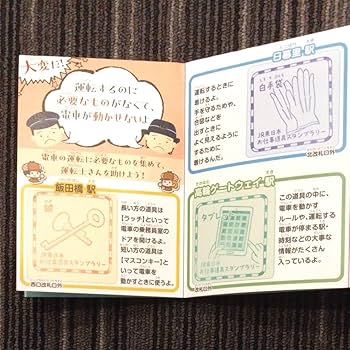 大変だ!
運転するのに
必要なものがなくて、
電車が動かせない!
電車の運転に必要なものを集めて、
運転士さんを助けよう!
飯田橋 駅
長い方の道具は
【ラッチ】といって
電車の乗務員室の
ドアを開けるよ。
短い方の道具は
【マスコンキー】と
いって電車を
動かすときに使うよ。
JR東日本
お仕事道具スタンプラリー
西口改札口外
日暮里 駅
運転するときに
着けるよ。
手を守るためや、
合図などを
出すときに
よく見えるように
するために
着けるんだ。
白手袋
JR東日本
お仕事道具スタンプラリー
北改札口外
高輪ゲートウェイ 駅
タブレ
JR東日本
お仕事道具スタンプラリー
改札口外
この道具の中に、
電車を動かす
ルールや、運転する
電車が停まる駅・
時刻などの大事な
情報がたくさん
入っているよ。